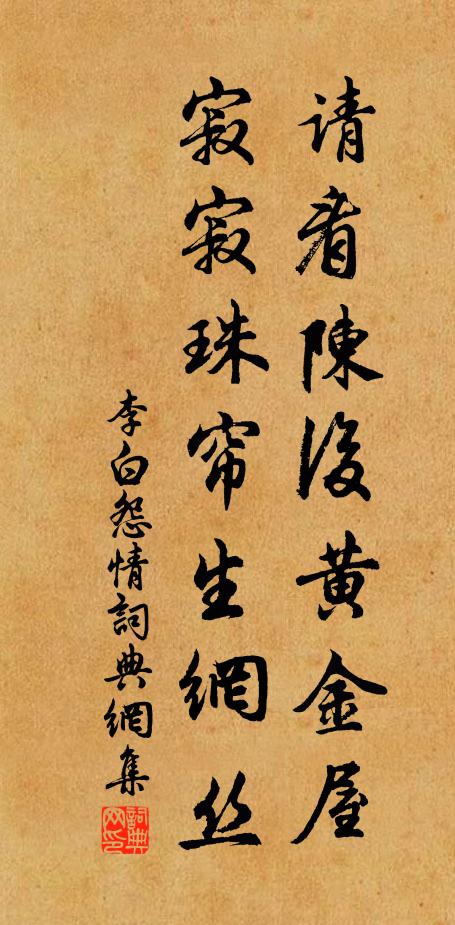 请看陳後黄金屋
寂寂珠帘生網丝
李白怨情詞典網集
詞典網印